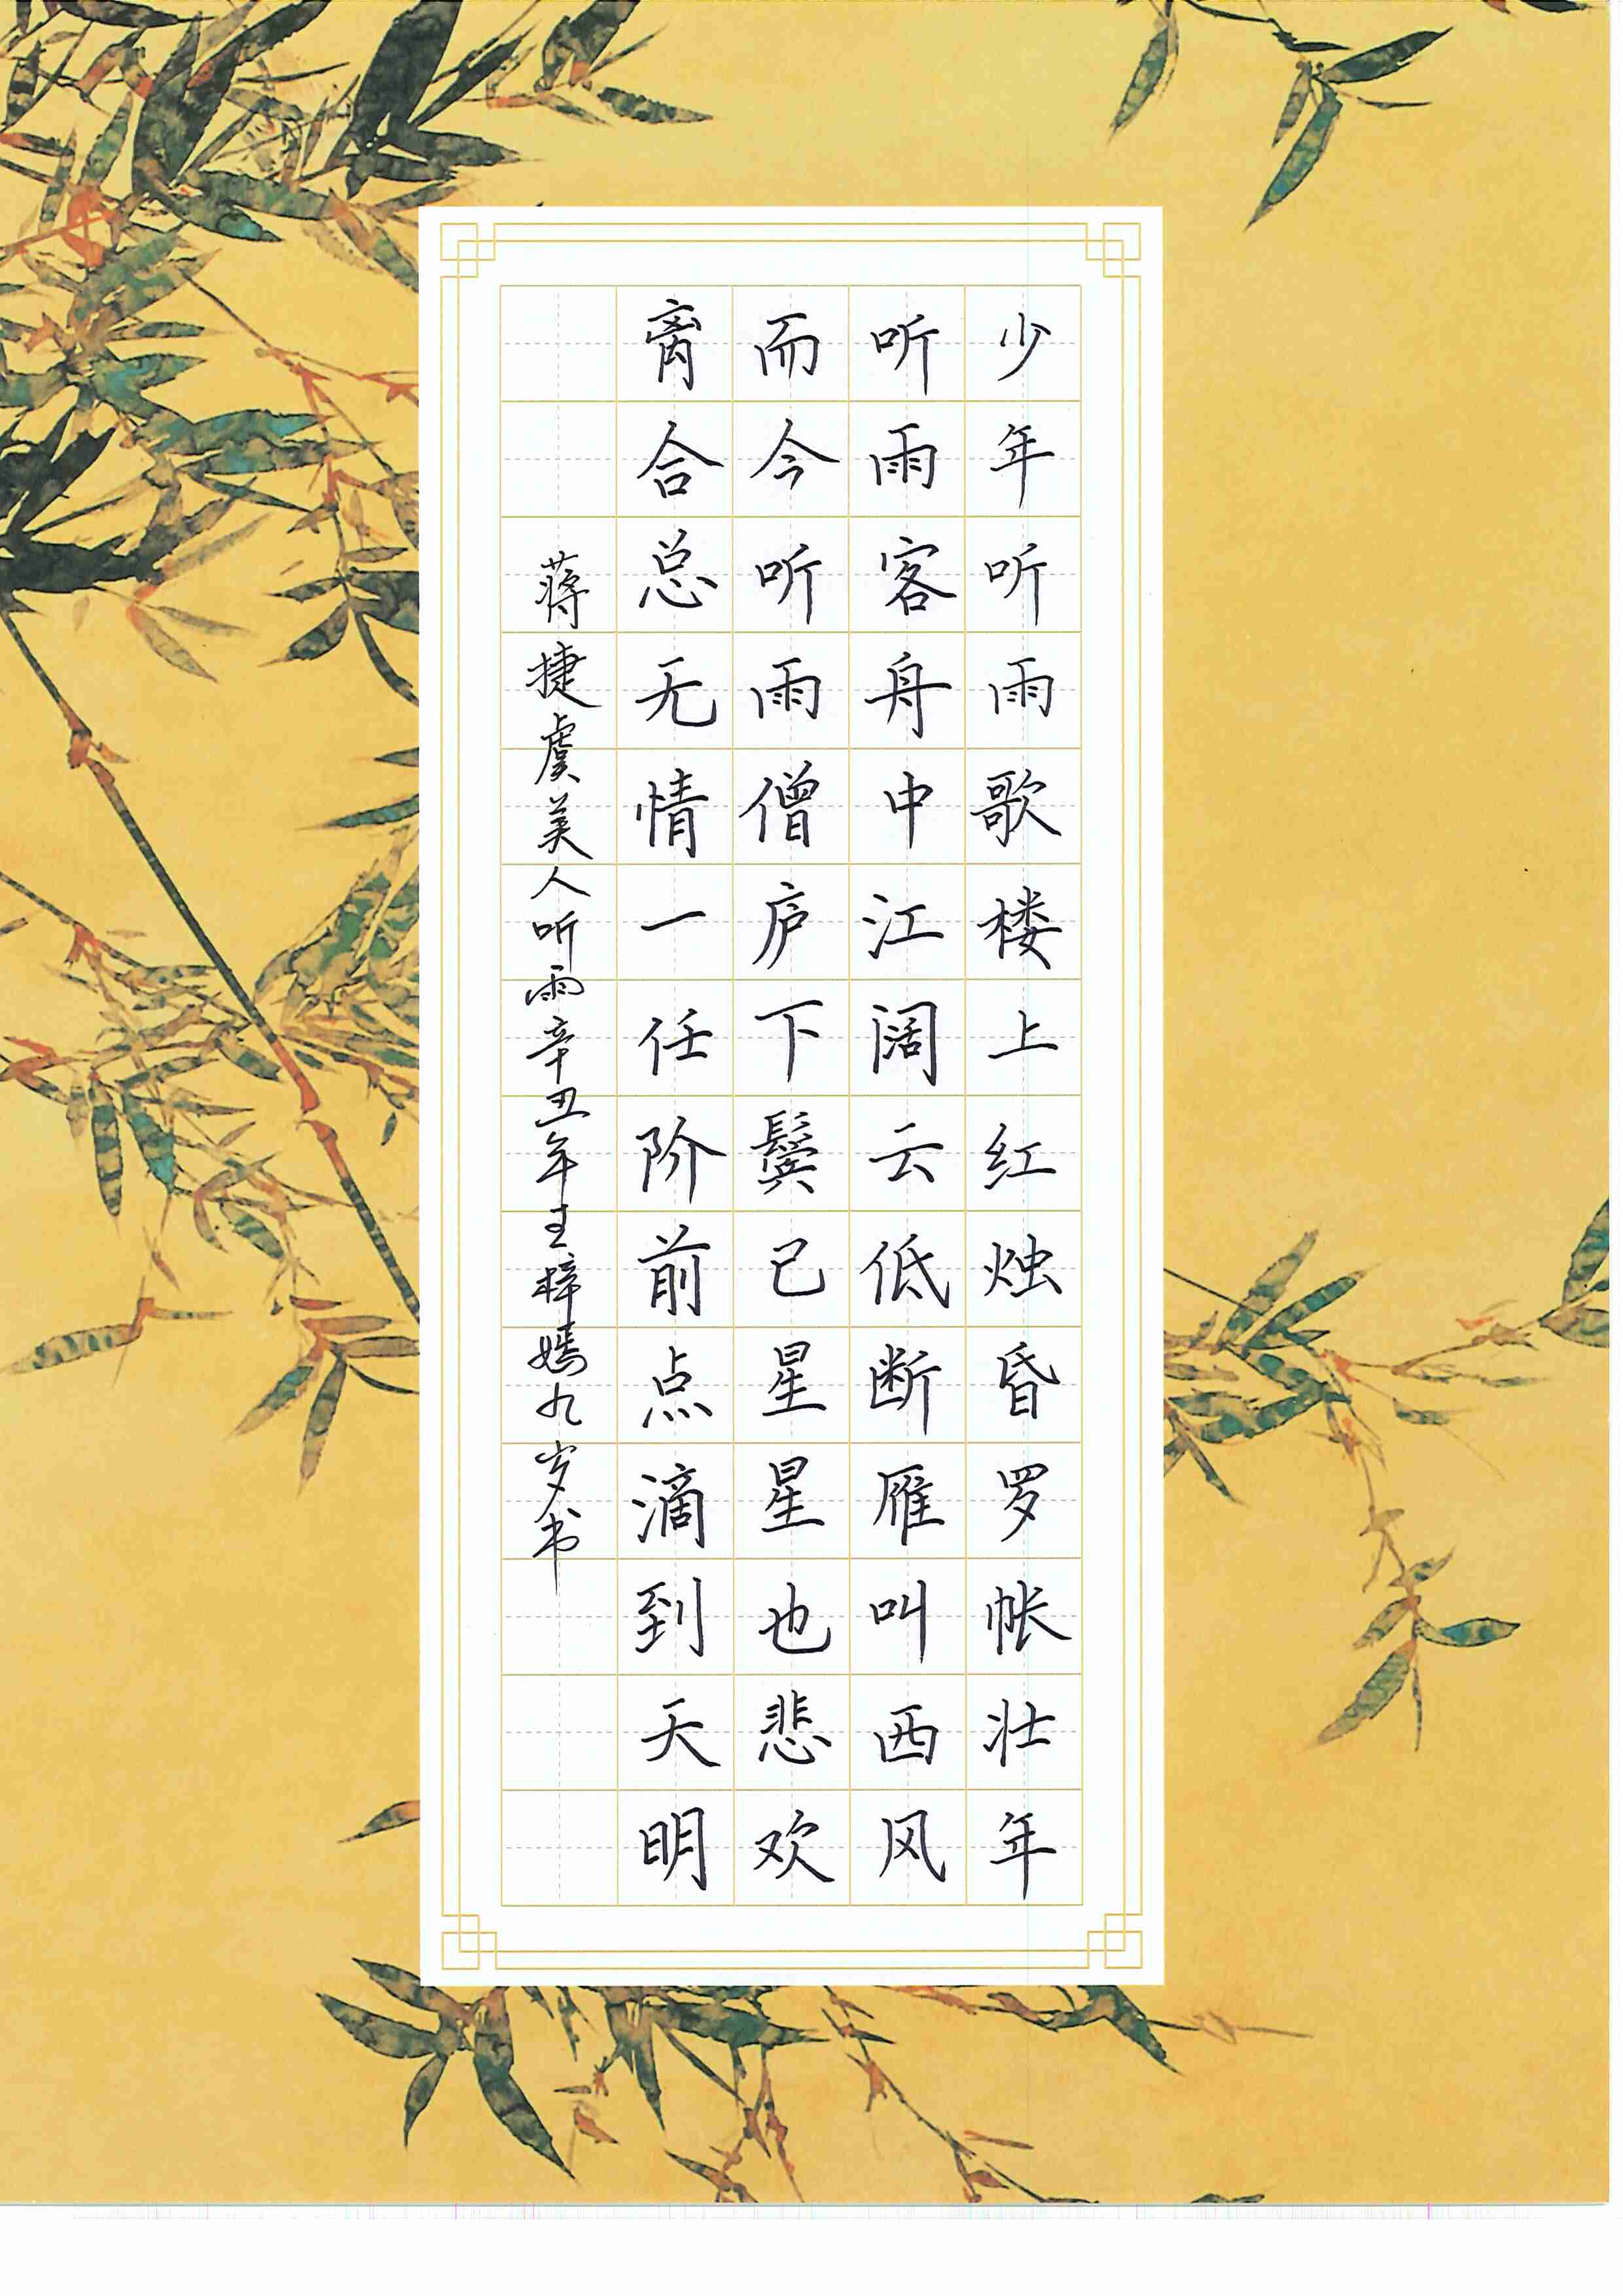 少年听雨歌楼上红烛昏罗帐壮年
听雨客舟中江阔云低断雁叫西风
而今听雨僧庐下鬓已星星也悲欢
离合总无情一任阶前点滴到天明
蒋捷虞美人听雨辛丑年王梓嫣九岁书